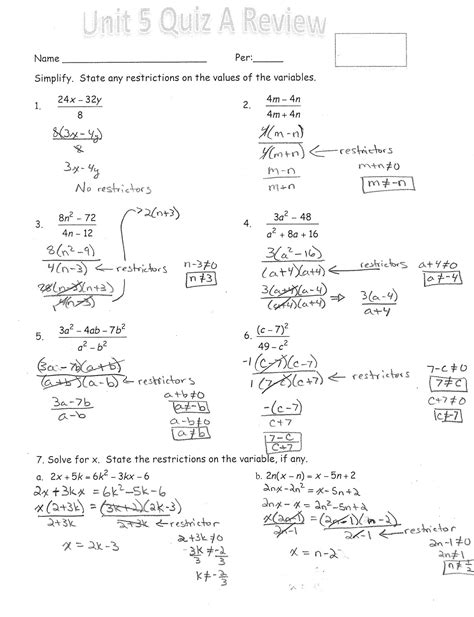 Unit 5 Quiz A Review
Name Per:
Simplify. State any restrictions on the values of the variables.
1. (24x − 32y)/8
8(3x − 4y)/8
3x − 4y
No restrictors
2. (4m − 4n)/(4m + 4n)
4(m−n)/4(m+n) ← restrictors
m+n≠0
(m−n)/(m+n)
m≠−n
3. (8n² − 72)/(4n − 12)
→2(n+3)
8(n²−9)/4(n−3) ← restrictors
n−3≠0
n≠3
8(n−3)(n+3)/4(n−3)
4. (3a² − 48)/(a² + 8a + 16)
3(a²−16)/(a+4)(a+4) ← restrictors
a+4≠0
a≠−4
3(a+4)(a−4)/(a+4)(a+4) ⇒ 3(a−4)/(a+4)
5. (3a² − 4ab − 7b²)/(a² − b²)
(3a−7b)(a+b)/(a+b)(a−b) ← restrictors
a+b≠0
a≠−b
(3a−7b)/(a−b)
a−b≠0
a≠b
6. (c − 7)²/(49 − c²)
−1(c−7)(c−7)/1(7−c)(c+7) ← restrictors
7−c≠0
7≠c
c+7≠0
c≠−7
−(c−7)/(c+7)
(7−c)/(c+7)
7. Solve for x. State the restrictions on the variable, if any.
a. 2x + 5k = 6k² − 3kx − 6
2x+3kx = 6k²−5k−6
x(2+3k)/(2+3k) = (3k+2)(2k−3)/(2+3k) ← restrictor
x = 2k−3
2+3k≠0
3k/3≠−2/3
k≠−2/3
b. 2n(x − n) = x − 5n + 2
2nx−2n² = x−5n+2
2nx−x = 2n²−5n+2
x(2n−1)/(2n−1) = (2n−1)(n−2)/(2n−1) ← restrictor
x = n−2
2n−1≠0
2n≠1
n≠½